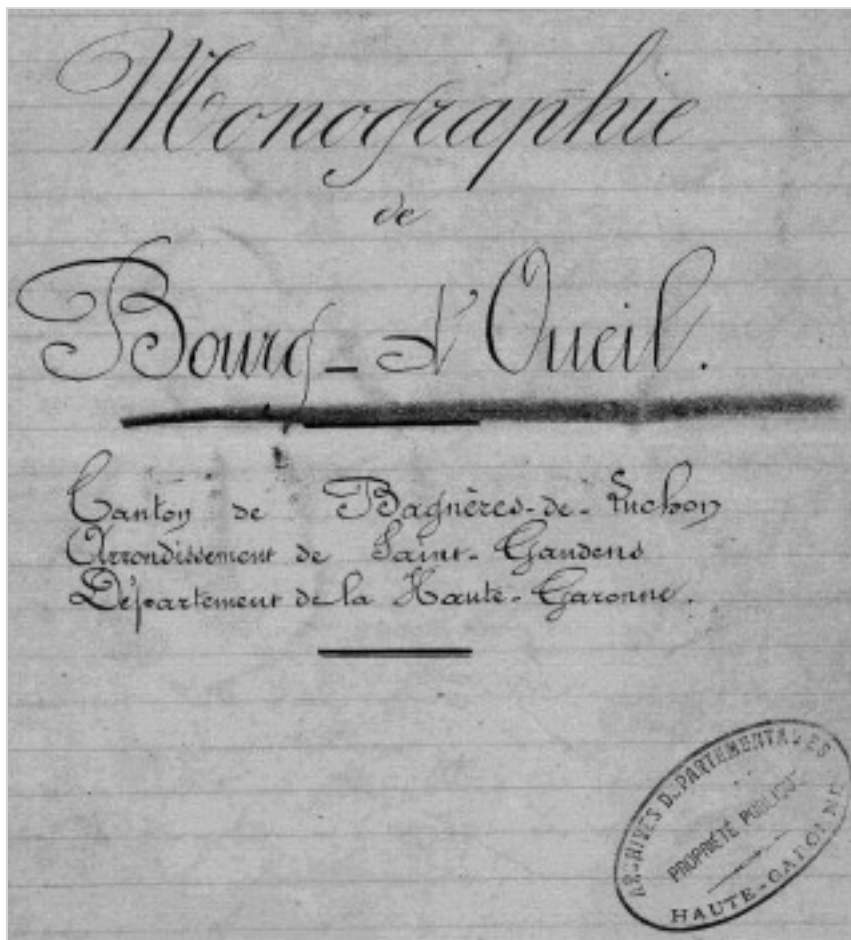 Monographie
de
Bourg-d'Oueil.
Canton de Bagnères-de-Luchon
Arrondissement de Saint-Gaudens
Département de la Haute-Garonne.
ARCHIVES DÉPARTEMENTALES
PROPRIÉTÉ PUBLIQUE
HAUTE-GARONNE